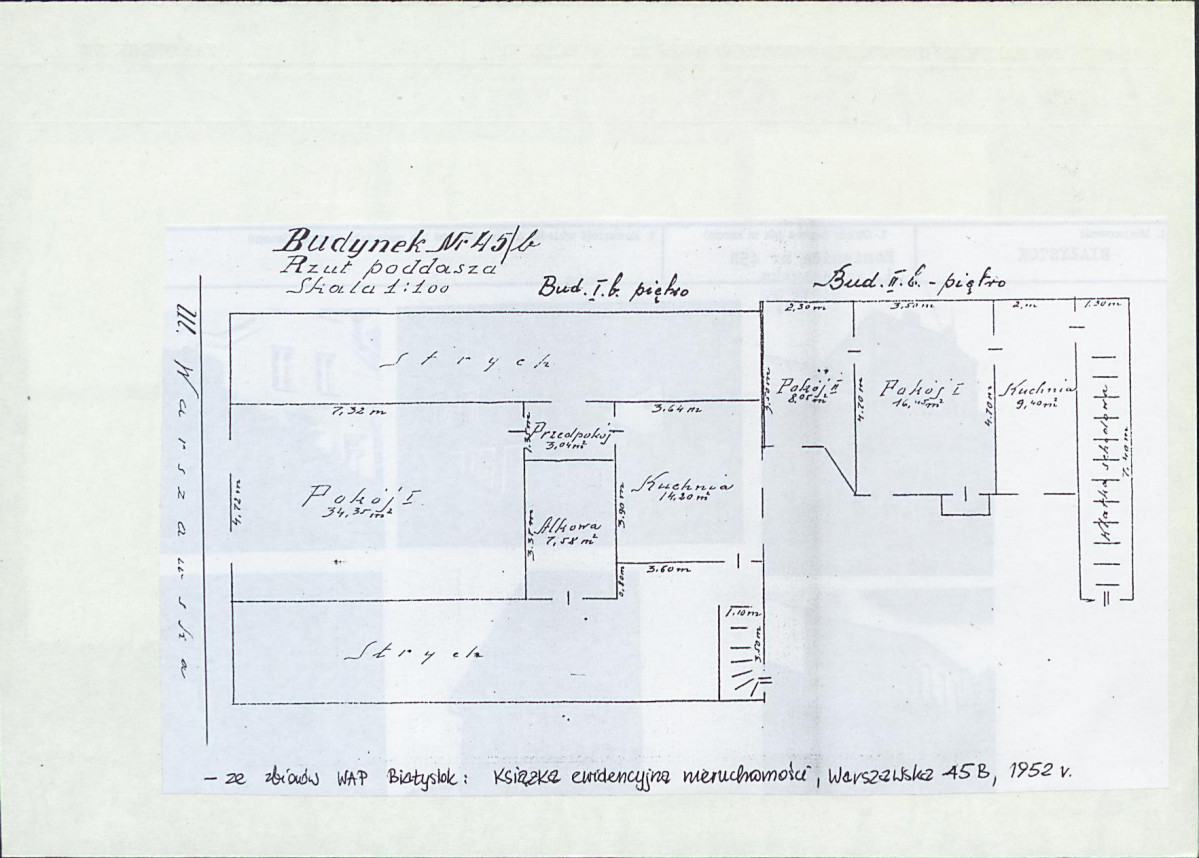 Budynek Nr 45/b
Rzut poddasza
Skala 1:100
Bud. I. b. piętro
Bud. II. b. - piętro
Ul. Warszawska
Strych
7,32 m
3.64 m
Przedpokój
3,04 m²
Pokój I
34,35 m²
4,72 m
Alkowa
7,58 m²
3.35 m
3.90 m
Kuchnia
14,20 m²
3.60 m
0,80 m
Strych
1,10 m
3.50 m
2,30 m
3,50 m
2, m
1.50 m
Pokój II
8,05 m²
3,50 m
Pokój I
16,45 m²
4.70 m
4.70 m
Kuchnia
9,40 m²
Klatka schodowa
7,40 m
- ze zbiorów WAP Białystok: Książka ewidencyjna nieruchomości, Warszawska 45B, 1952 r.
BIAŁYSTOK